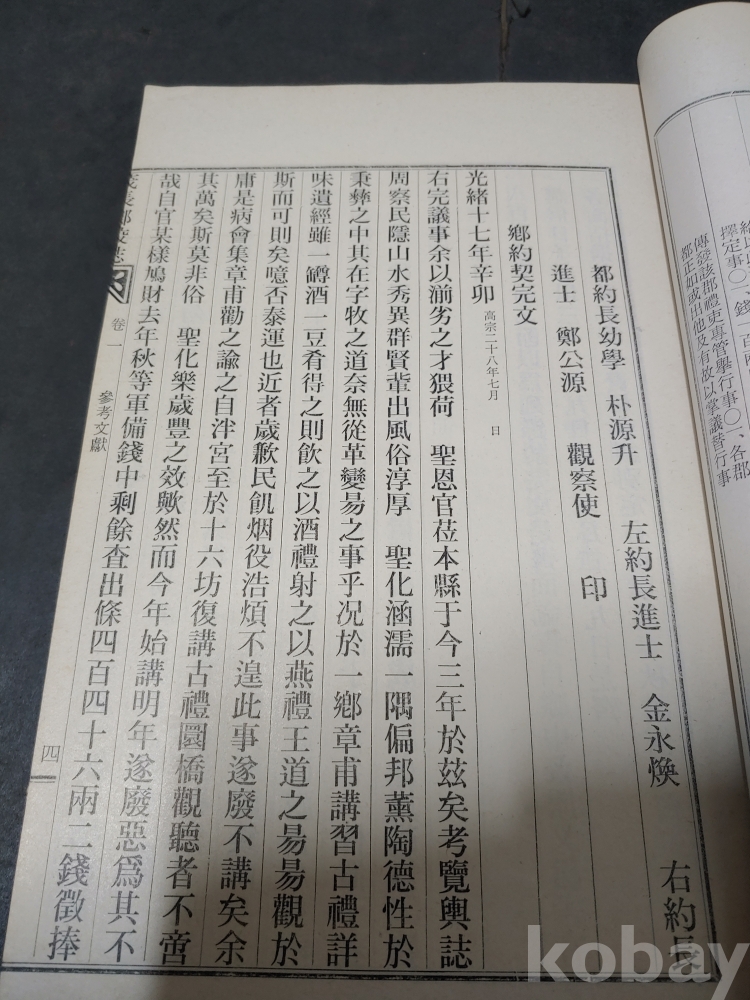 擇定事○一、錢一百
傳發該郡禮吏專管擧行事○一、各郡
都正如或出他及有故以掌議替行事
都約長幼學 朴源升 左約長進士 金永煥 右約長
進士 鄭公源 觀察使 印
鄉約契完文
光緒十七年辛卯 高宗二十八年七月 日
右完議事余以湔劣之才猥荷 聖恩官莅本縣于今三年於玆矣考覽輿誌
周察民隱山水秀異群賢輩出風俗淳厚 聖化涵濡一隅偏邦薰陶德性於
秉彝之中其在字牧之道奈無從革變易之事乎况於一鄉章甫講習古禮詳
味遺經雖一罇酒一豆肴得之則飮之以酒禮射之以燕禮王道之易易觀於
斯而可則矣噫否泰運也近者歲歉民飢烟役浩煩不遑此事遂廢不講矣余
庸是病會集章甫勸之諭之自泮宮至於十六坊復講古禮圜橋觀聽者不啻
其萬矣斯莫非俗 聖化樂歲豐之效歟然而今年始講明年遂廢惡爲其不
哉自官某樣鳩財去年秋等軍備錢中剩餘査出條四百四十六兩二錢徵捧
長鄉校誌 卷一 參考文獻 四
kobay